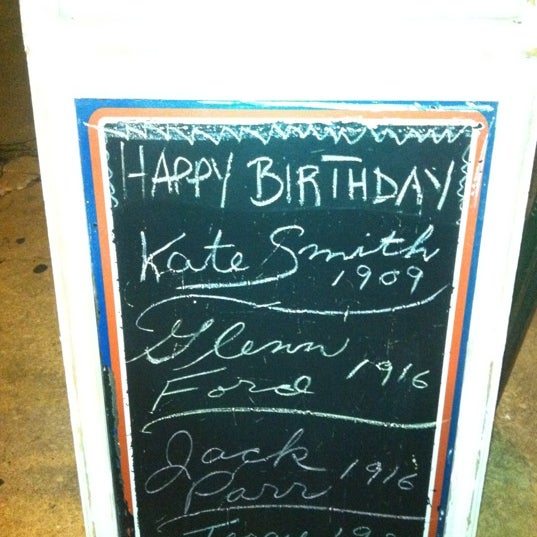 HAPPY BIRTHDAY
Kate Smith
1909
Glenn
Ford 1916
Jack
Parr 1916